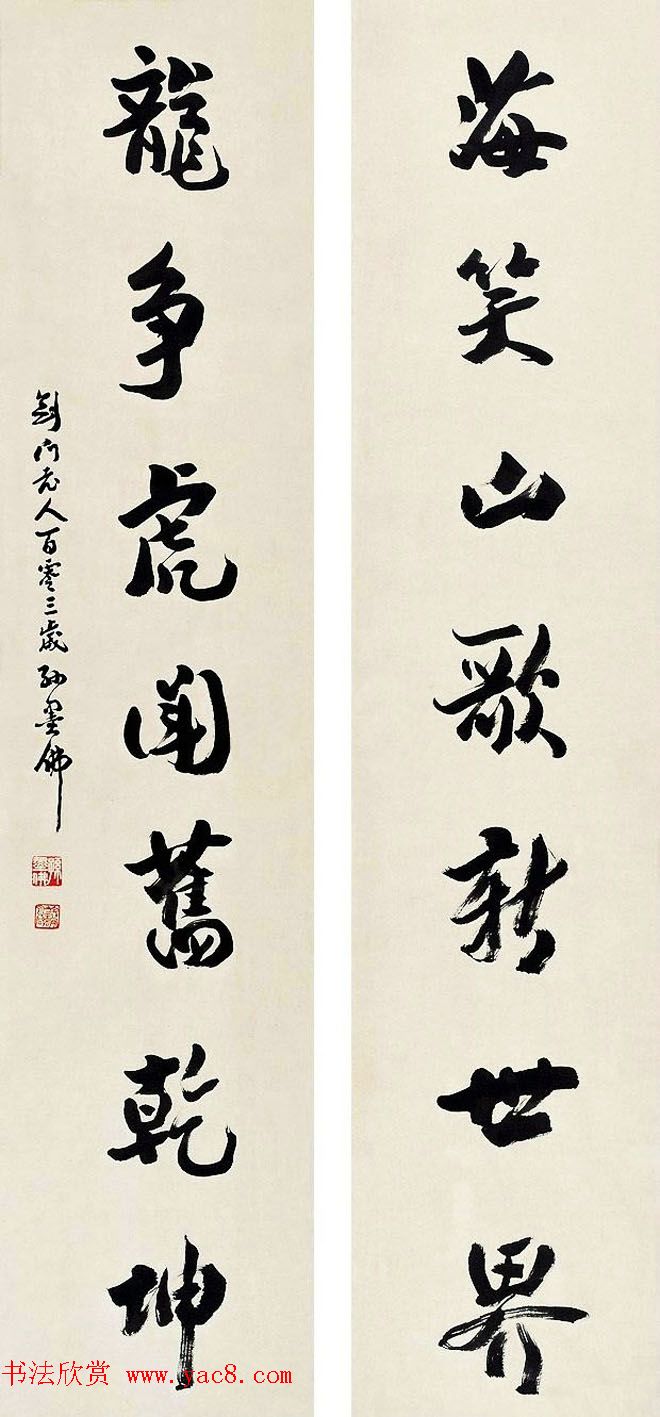 海笑山歌新世界
龍争虎鬪舊乾坤
劍門老人百零三歲孫墨佛
书法欣赏 www.yac8.com